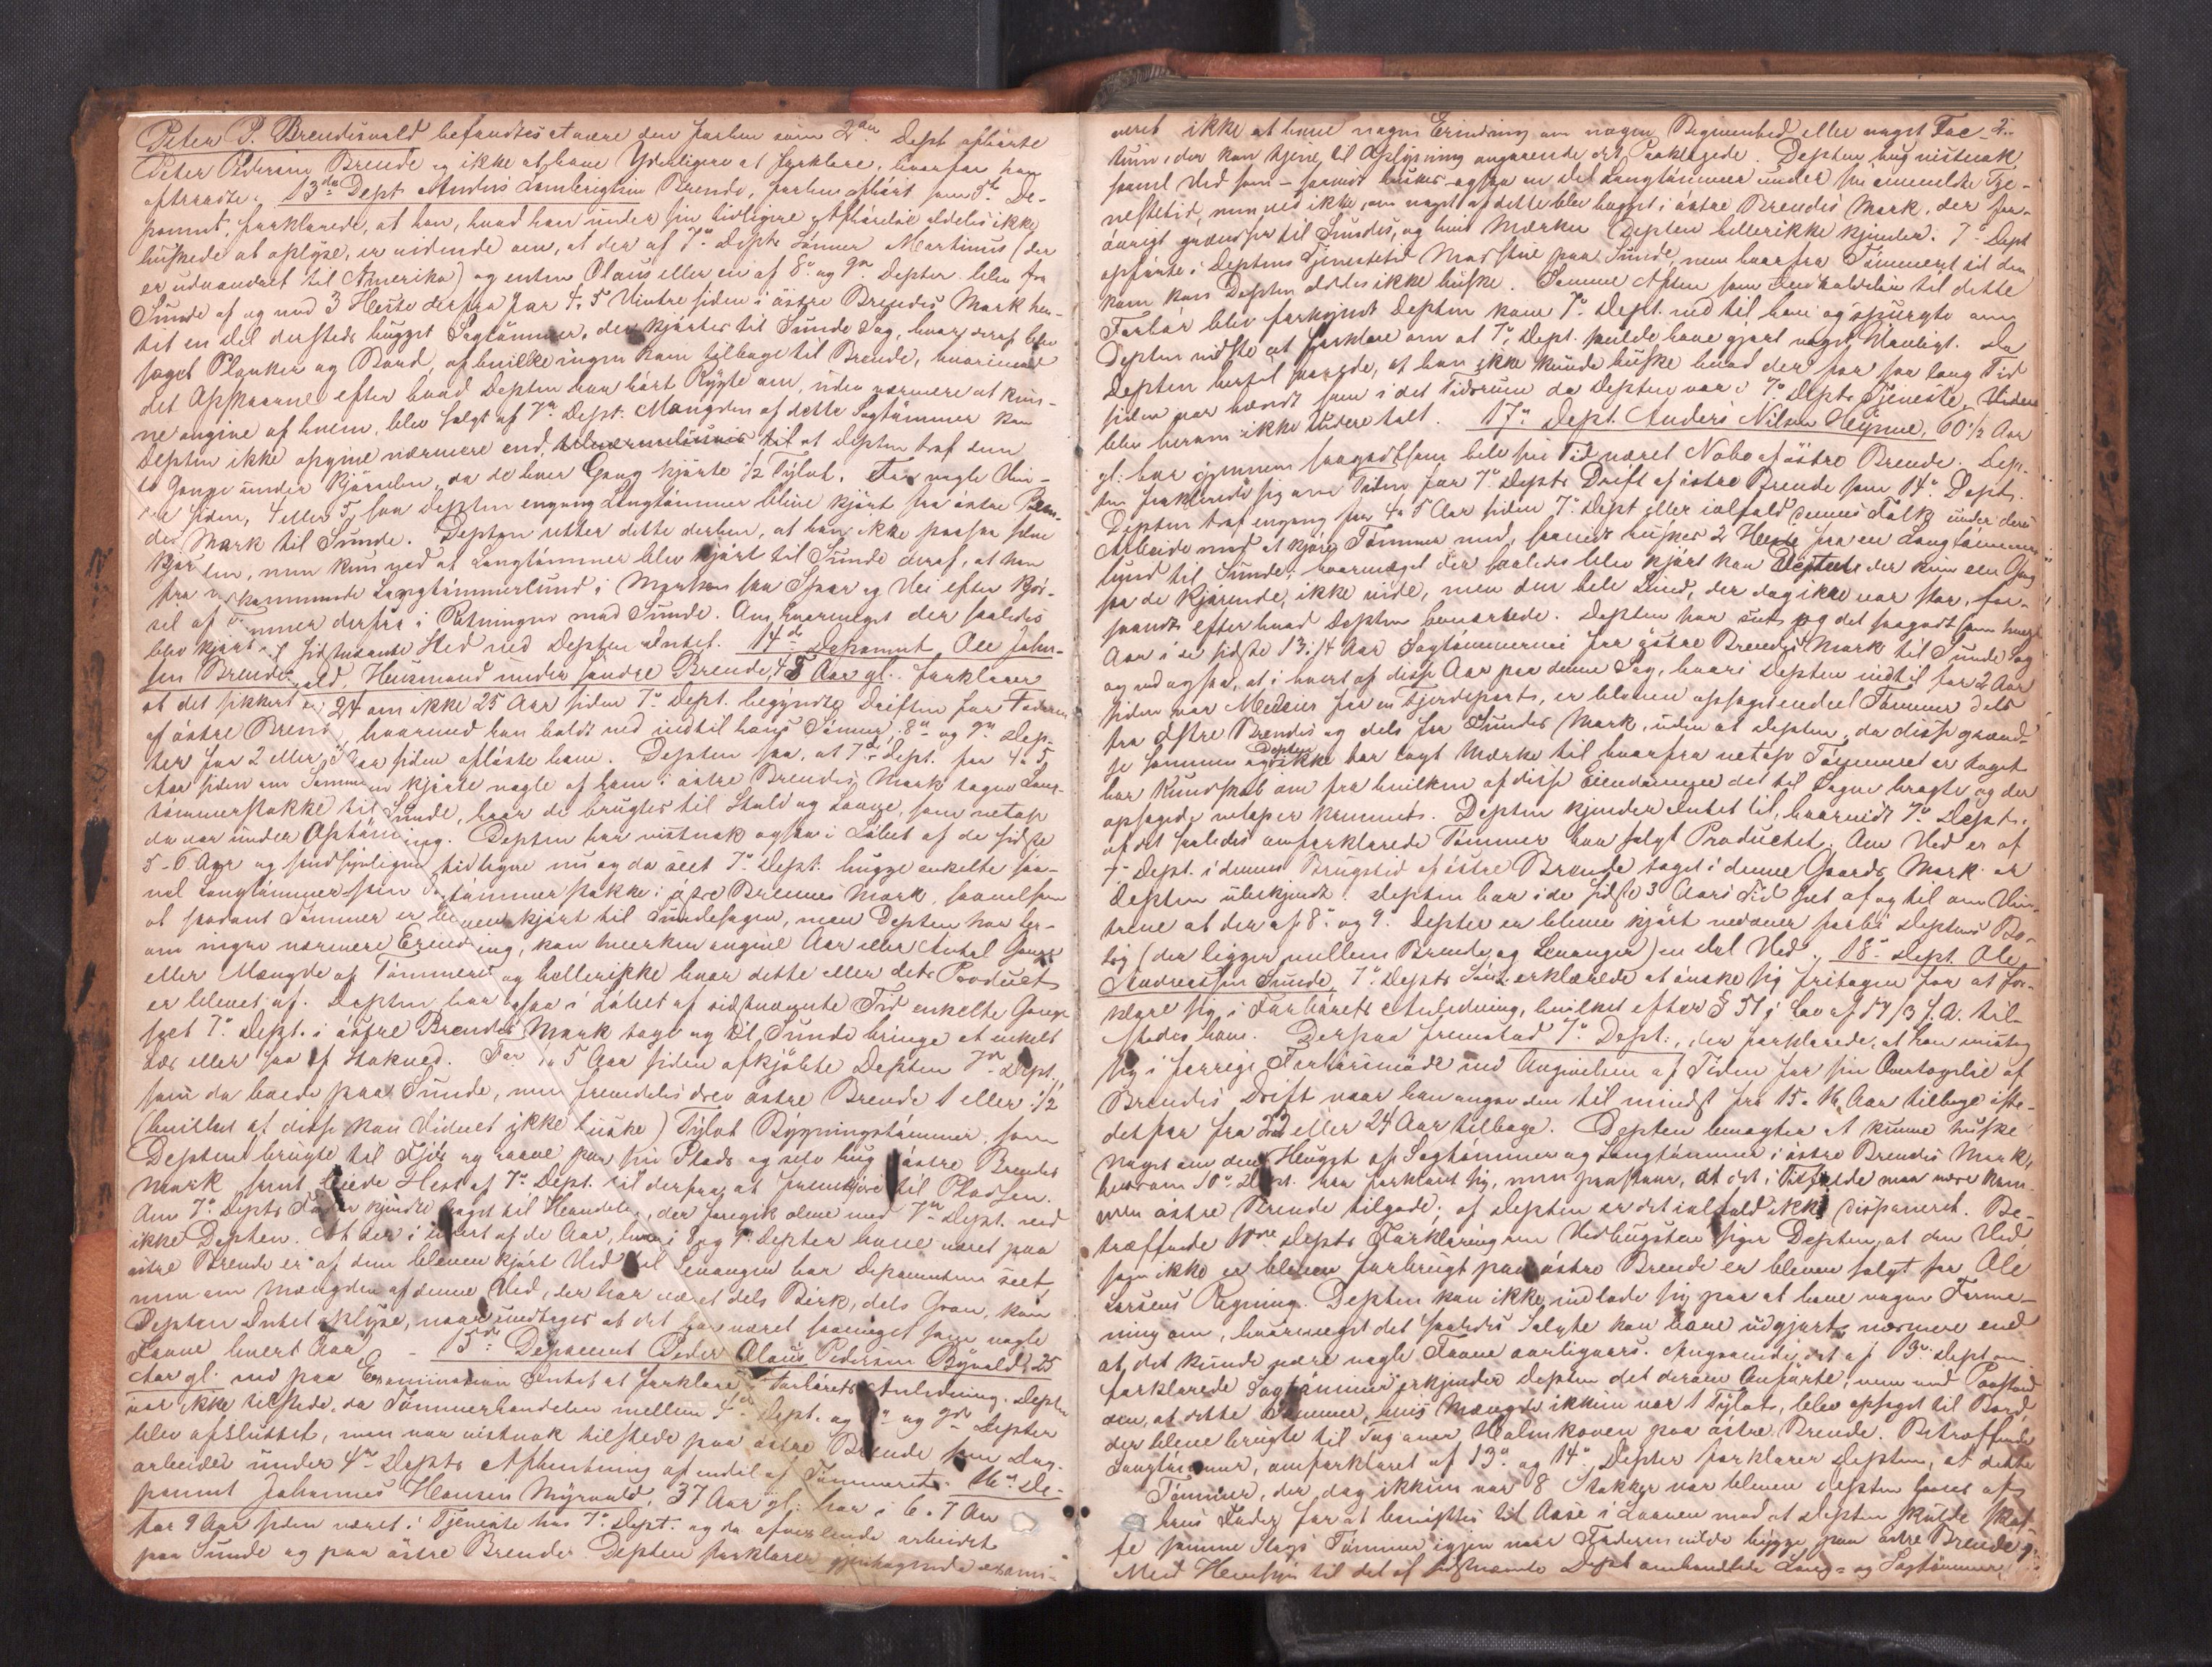 Peter P. Brendisvald befandtes at være den samme som 2den Dept afhørte
Peter Pedersen Brende og ikke at have Yderligere at forklare, hvorfor han
aftraadte. 13de Dept Anders Lambrigtsen Brende, forhen afhørt som 5te De-
ponent, forklarede, at han, hvad han under sin tidligere Afhørelse aldeles ikke
huskede at oplyse, er vidende om, at der af 7de Depts Sønner Martinus (der
er udvandret til Amerika) og enten Olaus eller en af 8de og 9de Depter blev fra
Sunde af og med 3 Heste derfra for 4 a 5 Vintre siden i östre Brendes Mark hen-
tet en Del dersteds hugget Sagtømmer, der kjørtes til Sunde Sag, hvor deraf blev
saget Planker og Bord, af hvilke ingen kom tilbage til Brende, hvorimod
det Opskaarne efter hvad Depten har hørt Rygte om, uden nærmere at kun-
ne angive af hvem, blev solgt af 7de Dept. Mængden af dette Sagtømmer kan
Depten ikke opgive nærmere end til at Depten traf dem
to Gange under Kjørselen, da de hver Gang kjørte ½ Tylvt. For nogle Vin-
tre siden, 4 eller 5, saa Depten engang Langtømmer blive kjørt fra östre Bren-
des Mark til Sunde. Depten retter dette derhen, at han ikke saa selve
Kjørselen, men kun ved at Langtømmer blev kjørt til Sunde deraf, at han
fra vedkommende Langtømmerlund i Marken saa Spor og Vei efter Kjør-
sel af Tømmer derfra i Retningen mod Sunde. Om hvormeget der saaledes
blev kjørt fra sidstnævnte Sted ved Depten Intet. 14de Deponent Ole John-
sen Brendesvald, Husmand under søndre Brende, 48 Aar gl. forklarer
at det sikkert er 24 om ikke 25 Aar siden 7de Dept. begyndte Driften for Faderen
af östre Brende, hvormed han holdt ved indtil hans Sønner, 8de og 9de Dep-
ter for 2 eller 3 Aar siden afløste ham. Depten saa, at 7de Dept. for 4 a 5
Aar siden om Sommeren kjørte nogle af ham i östre Brendes Mark tagne Lang-
tømmerstokke til Sunde, hvor de brugtes til Stald og Lauge, som netop
da var under Optømring. Depten har vistnok ogsaa i Løbet af de sidste
5-6 Aar og sandsynligvis tidligere nu og da seet 7de Dept. hugge enkelte saa-
vel Langtømmer som Sagtømmerstokke i østre Brendes Mark, saavelsom
at saadant Tømmer er bleven kjørt til Sundesagen, men Depten har her-
om ingen nærmere Erindring, kan hverken angive Aar eller Antal Gange
eller Mængde af Tømmeret og hellerikke hvor dette eller dets Product
er blevet af. Depten har ogsaa i Løbet af sidstnævnte Tid enkelte Gange
seet 7de Dept. i östre Brendes Mark tage og til Sunde bringe et enkelt
Læs eller saa af Stakved. For 4 a 5 Aar siden afkjøbte Depten 7de Dept.
som da boede paa Sunde, men fremdeles drev östre Brende 1 eller ½
(hvilket af disse kan Vidnet ikke huske) Tylvt Bygningstømmer, som
Depten brugte til Fjøs og Laave paa sin Plads og selv hug i östre Brendes
Mark samt leiede Hest af 7de Dept. til derfra at fremkjøre til Pladsen.
Om 7de Depts Fader kjendte Noget til Handelen, der foregik alene med 7de Dept. ved
ikke Depten. At der i hvert af de Aar, hvori 8de og 9de Depter have været paa
østre Brende er af dem bleven kjørt Ved til Levanger har Deponenten seet
men om Mængden af denne Ved, der har været dels Birk, dels Gran, kan
Depten Intet oplyse, naar undtages at det har været saameget som nogle
Favne hvert Aar. - 15de Deponent Peder Olaus Pedersen Byvald, 25
Aar gl. ved paa Examination Intet at forklare i Forhørets Anledning. Depten
var ikke tilstede, da Tømmerhandelen mellem 4de Dept. og 8de og 9de Depter
blev afsluttet, men var vistnok tilstede paa östre Brende som Dag-
arbeider under 4de Depts Afhentning af endel af Tømmeret. 16de De-
ponent Johannes Hansen Myrvold, 37 Aar gl. har i 6 a 7 Aar
for 9 Aar siden været i Tjeneste hos 7de Dept. og da afvexlende arbeidet
paa Sunde og paa östre Brende. Depten forklarer gjentagende exami-
neret ikke at have nogen Erindring om nogen Begivenhed eller noget Fac- 2.
tum, der kan tjene til Oplysning angaaende det Paaklagede. Depten hug vistnok
saavel Ved som - saavidt huskes - ogsaa en Del Langtømmer under sin anmeldte Tje-
nestetid, men ved ikke, om noget af dette blev hugget i östre Brendes Mark, der for-
övrigt grændser til Sundes, og hvis Mærker Depten hellerikke kjender. 7de Dept
opførte i Deptens Tjenestetid Masstue paa Sunde, men hvorfra Tømmeret til den
kom kan Depten aldeles ikke huske. Samme Aften som Indkaldelsen til dette
Forhør blev forkyndt Depten kom 7de Dept. ned til ham og spurgte om
Depten vidste at forklare om at 7de Dept. skulde have gjort noget Ulovligt. Da
Depten hertil svarede, at han ikke kunde huske hvad der for saa lang Tid
siden var hændt som i det Tidsrum da Depten var i 7de Depts Tjeneste, Videre
blev herom ikke videre talt. 17de Dept. Anders Nilsen Heynne, 60½ Aar
gl. har gjennem saagodtsom hele sin Tid været Nabo af östre Brende. Dep-
ten forklarede sig om Tiden for 7de Depts Drift af östre Brende som 14de Dept.
Depten traf engang for 4 a 5 Aar siden 7de Dept eller ialfald dennes Folk under deres
Arbeide med at kjøre Tømmer med, saavidt huskes 2 Heste fra en Langtømmer-
lund til Sunde; hvormeget der saaledes blev kjørt kan Depten der kun een Gang
saa de Kjørende, ikke vide, men den hele Lund, der dog ikke var stor, for-
svandt efter hvad Depten bemærkede. Depten har seet og det saagodt som hvert
Aar i de sidste 13 a 14 Aar Sagtømmer fra östre Brendes Mark til Sunde Sag
og ved ogsaa, at i hvert af disse Aar paa denne Sag, hvori Depten indtil for 2 Aar
siden var Medeier for en Fjerdepart, er bleven opsaget endeel Tømmer dels
fra Østre Brendes og dels fra Sundes Mark, uden at Depten, da disse grænd-
se sammen og Depten ikke har lagt Mærke til hvorfra netop Tømmeret er taget
har Kundskab om fra hvilken af disse Eiendomme det til Sagen bragte og der
opsagede netop er kommet. Depten kjender Intet til, hvorvidt 7de Dept.
af det saaledes omforklarede Tømmer har solgt Productet. Om Ved er af
7de Dept. i dennes Brugstid af östre Brende taget i denne Gaards Mark er
Depten ubekjendt. Depten har i de sidste 3 Aars Tid seet af og til om Vin-
trene at der af 8de og 9de Depter er bleven kjørt nedover forbi Deptens Bo-
lig (der ligger mellem Brende og Levanger) en Del Ved. 18de Dept. Ole
Andreassen Sunde, 7de Depts Søn, erklærede at ønske sig fritagen for at for-
klare sig i Forhørets Anledning, hvilket efter § 51 i Lov af 17/3 f. A. til-
stedes ham. Derpaa fremstod 7de Dept., der forklarede, at han mistog
sig i forrige Forhørsmøde ved Angivelsen af Tiden for sin Overtagelse af
Brendes Drift naar han angav den til mindst fra 15 a 16 Aar tilbage iste-
detfor fra 22 eller 24 Aar tilbage. Depten benægter at kunne huske
Noget om den Hugst af Sagtømmer og Langtømmer i östre Brendes Mark,
hvorom 10de Dept. har forklaret sig, men paastaar, at det i Tilfælde maa være kom-
men østre Brende tilgode; af Depten er det ialfald ikke disponeret. Be-
træffende 11te Depts Forklaring om Vedhugsten siger Depten, at den Ved,
som ikke er bleven forbrugt paa östre Brende er bleven solgt for Ole
Larsens Regning. Depten kan ikke indlade sig paa at have nogen Forme-
ning om, hvormeget det saaledes Solgte kan have udgjort nærmere end
at det kunde være nogle Favne aarligaars. Angaaende det af 13de Dept om-
forklarede Sagtømmer erkjender Depten det derom Anførte, men med Paastand
om, at dette Tømmer, hvis Mængde ikkun var 1 Tylvt, blev opsaget til Bord,
der bleve brugte til Tag over Halmkoven paa östre Brende. Betræffende
Langtømmer, omforklaret af 13de og 14de Depter forklarer Depten, at dette
Tømmer, der dog ikkun var 8 Stokker var bleven Depten laant af
hans Fader for at benyttes til Aase i Laaven mod at Depten skulde skaf-
fe samme Slags Tømmer igjen naar Faderen vilde bygge paa östre Brende.
Med Hensyn til det af sidstnævnte Dept omhandlede Lang- og Sagtømmer,